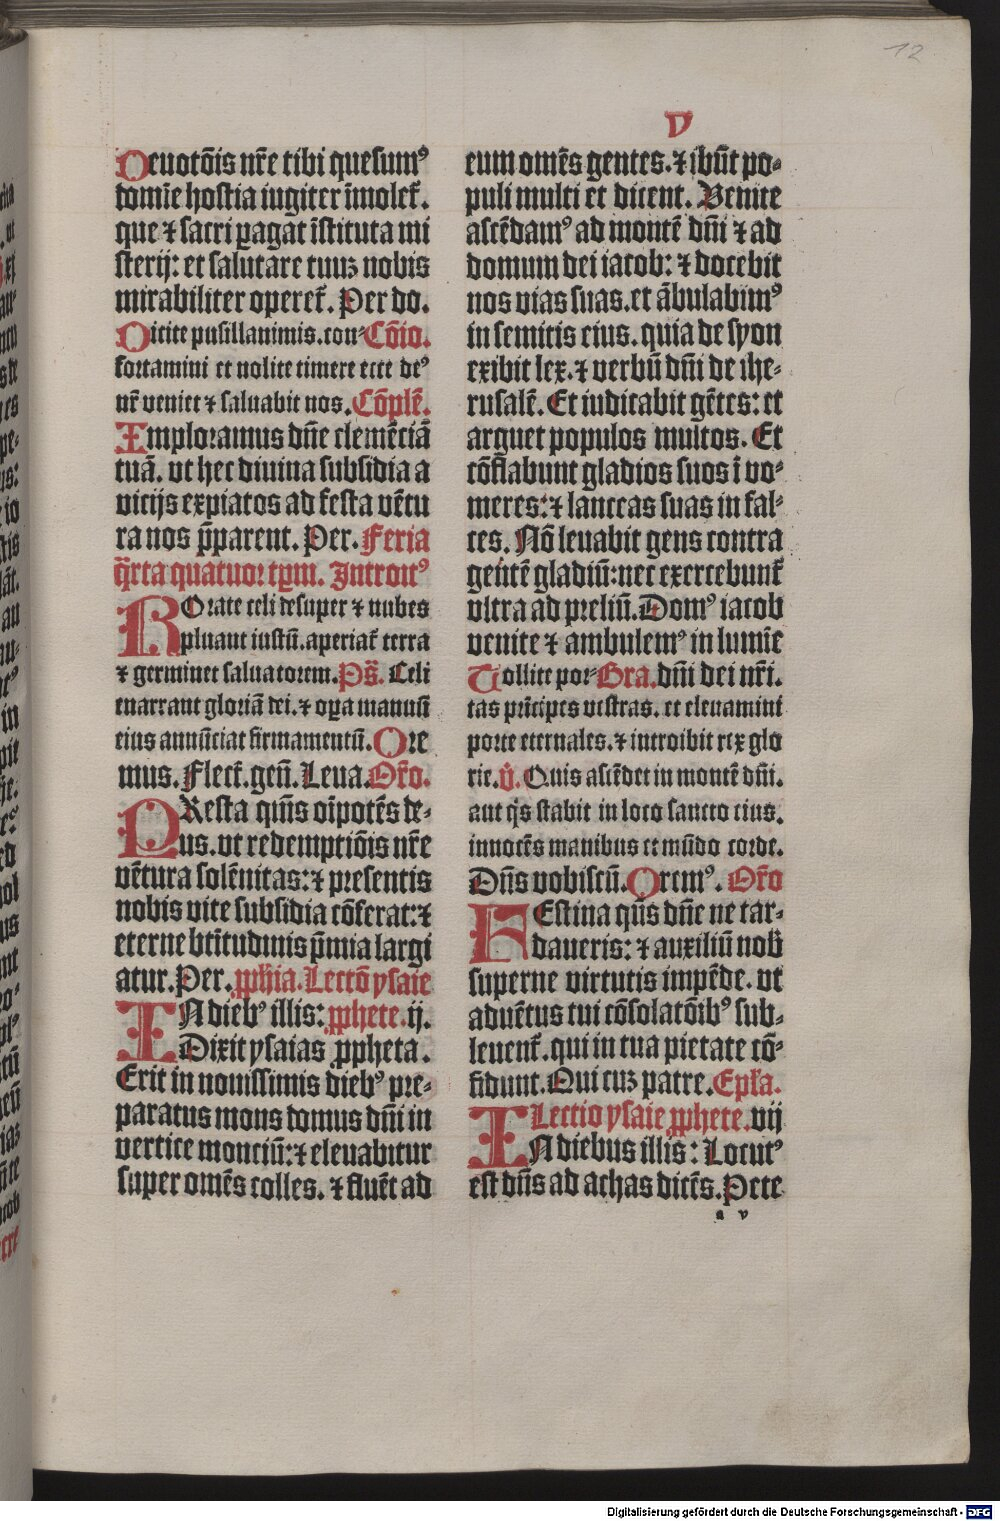 12
V
Deuotōis nr̄e tibi quesumꝰ
domīe hostia iugiter īmolet᷑.
que ⁊ sacri ꝑagat īstituta mi
sterij: et salutare tuuꝫ nobis
mirabiliter operet᷑. Per do.
Dicite pusillanimis. con- Cōio.
fortamini et nolite timere ecce deꝰ
nr̄ veniet ⁊ saluabit nos. Cōplē.
Imploramus dn̄e clemētiā
tuā. vt hec diuina subsidia a
vicijs expiatos ad festa vētu
ra nos p̄parent. Per. Feria
q̄rta quatuor tꝑm. Introitꝰ
ROrate celi desuper ⁊ nubes
pluant iustū. aperiat᷑ terra
⁊ germinet saluatorem. Ps̄. Celi
enarrant gloriā dei. ⁊ oꝑa manuū
eius annūciat firmamentū. Ore
mus. Flect᷑. genū. Leua. Or̄o.
PResta qm̄s oīpotēs de-
us. vt redemptiōis nr̄e
vētura solēnitas: ⁊ presentis
nobis vite subsidia cōferat: ⁊
eterne btītudinis p̄mia largi
atur. Per. ꝓphīa. Lectō ysaie
IN diebꝰ illis: ꝓphete. ij.
Dixit ysaias ꝓpheta.
Erit in nouissimis diebꝰ pre-
paratus mons domus dn̄i in
vertice montiū: ⁊ eleuabitur
super omēs colles. ⁊ fluēt ad
eum omēs gentes. ⁊ ibūt po-
puli multi et dicent. Venite
ascēdamꝰ ad montē dn̄i ⁊ ad
domum dei iacob: ⁊ docebit
nos vias suas. et ābulabimꝰ
in semitis eius. quia de syon
exibit lex. ⁊ verbū dn̄i de ihe-
rusalē. Et iudicabit gētes: et
arguet populos multos. Et
cōflabunt gladios suos ī vo-
meres: ⁊ lanceas suas in fal-
ces. Nō leuabit gens contra
gentē gladiū: nec exercebunt᷑
vltra ad preliū. Domꝰ iacob
venite ⁊ ambulemꝰ in lumīe
Tollite por- Gra. dn̄i dei nr̄i.
tas prīcipes vestras. et eleuamini
porte eternales. ⁊ introibit rex glo
rie. v̄. Quis ascēdet in montē dn̄i.
aut q̄s stabit in loco sancto eius.
innocēs manibus et mūdo corde.
Dn̄s vobiscū. Oremꝰ. Or̄o
FEstina qūs dn̄e ne tar-
daueris: ⁊ auxiliū nob̄
superne virtutis impēde. vt
aduētus tui cōsolatōibꝰ sub-
leuent᷑. qui in tua pietate cō-
fidunt. Qui cuꝫ patre. Epl̄a.
Lectio ysaie ꝓphete. vij
IN diebus illis: Locutꝰ
est dn̄s ad achas dicēs. Pete
a v
Digitalisierung gefördert durch die Deutsche Forschungsgemeinschaft - DFG